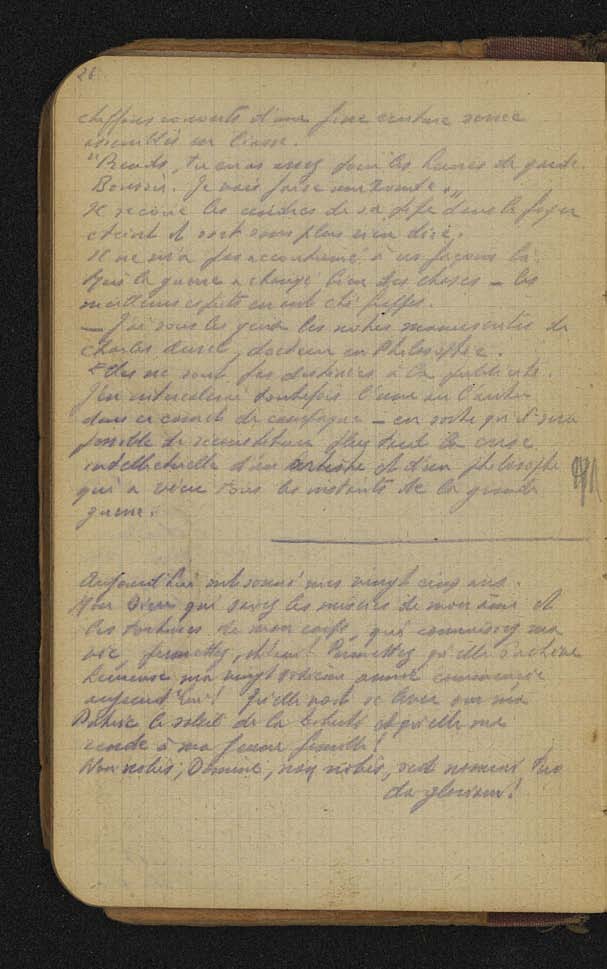 26
chiffons couverts d'une fine écriture
assemblés en liasse.
"Prends, tu en as assez pour les heures de garde.
Bonsoir. Je vais faire une ronde."
Il secoue les cendres de sa pipe dans le foyer
éteint et sort sans plus rien dire.
Il ne m'a pas accoutumé à ces façons là.
Mais la guerre a changé bien des choses — les
meilleurs esprits en ont été
— J'ai sous les yeux les notes manuscrites de
Charles docteur en Philosophie.
Elles ne sont pas destinées à la publicité.
J'en intercalerai toutefois l'une ou l'autre
dans ce carnet de campagne — en sorte qu'il sera
possible de reconstituer plus tard la crise
intellectuelle d'un artiste et d'un philosophe
qui a vécu tous les instants de la grande
guerre.
Aujourd'hui ont sonné mes vingt cinq ans.
Mon Dieu qui savez les misères de mon âme et
les tortures de mon corps, qui connaissez ma
vie, permettez, Permettez qu'elle s'achève
heureuse ma vingt sixième année commencée
aujourd'hui! Qu'elle voit se lever sur ma
Patrie le soleil de la liberté et qu'elle me
rende à ma famille!
Non nobis, Domine, non nobis, sed nomini tuo
da gloriam!